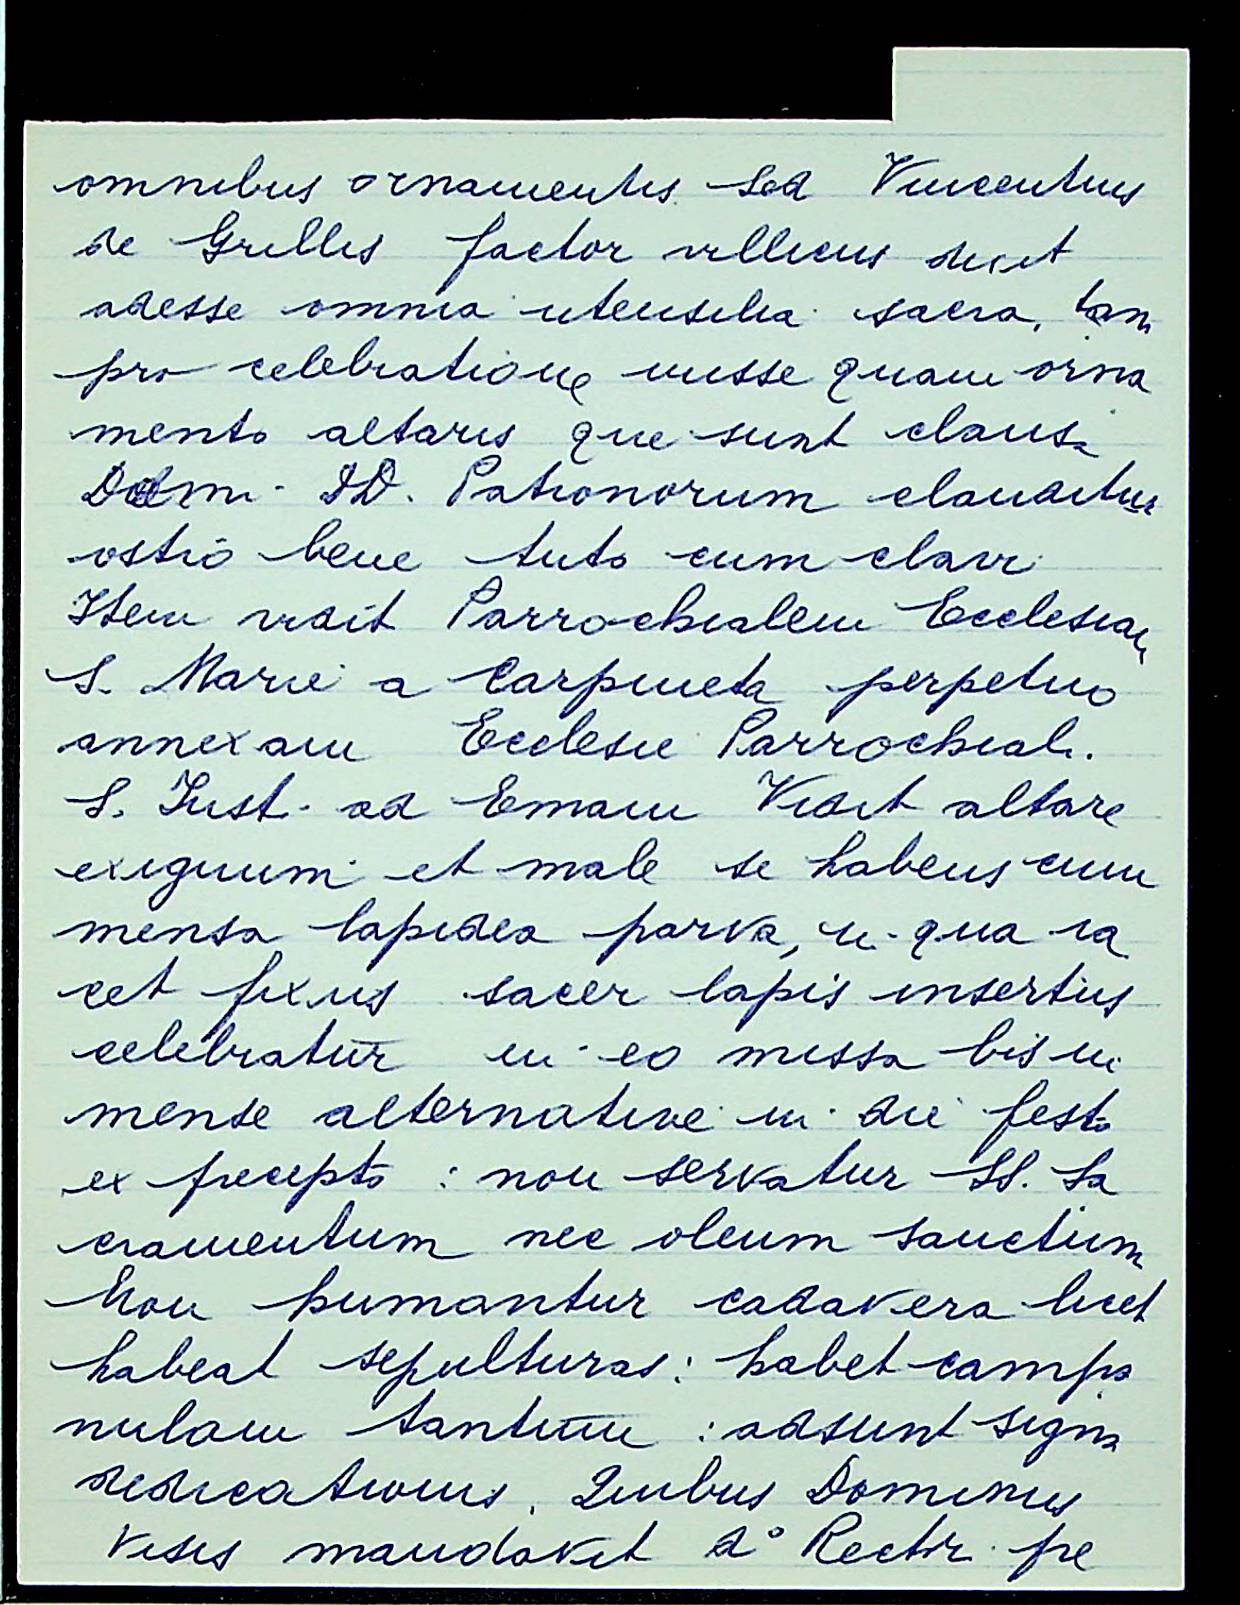 omnibus ornamentis sed Vincentius
de Grillis factor villicus dicit
adesse omnia utensilia sacra, tam
pro celebratione misse quam orna
mento altaris que sunt clausa
Dom. DD. Patronorum clauditur
ostio bene tuto cum clavi
Item vidit Parrochialem Ecclesiam
S. Marie a Carpineta perpetuo
annexam Ecclesie Parrochial.
S. Iust. ad Emam Vidit altare
exiguum et male se habens cum
mensa lapidea parva, in qua ia
cet fixus sacer lapis insertus
celebratur in eo missa bis in
mense alternative in die festo
ex precepto : non servatur SS. Sa
cramentum nec oleum sanctum
Non humantur cadavera licet
habeat sepulturas : habet campa
nulam tantum : adsunt signa
dedicationis. Quibus Dominus
visis mandavit d° Rectori pre